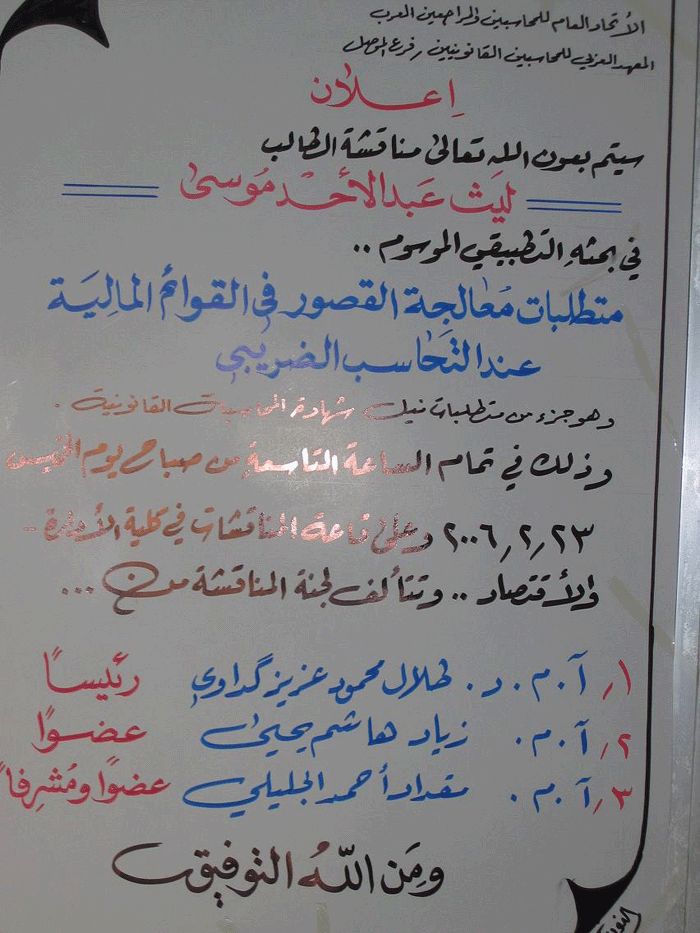 الأتحاد العام للمحاسبين والمراجعين العرب
المعهد العربي للمحاسبين القانونيين / فرع الموصل
إعلان
سيتم بعون الله تعالى مناقشة الطالب
ليث عبد الأحد موسى
في بحثهِ التطبيقي الموسوم ..
متطلبات مُعالجة القصور في القوائم الماليَة
عند التحَاسب الضريبي
وهو جزء من متطلبات نيل شهادة المحاسبات القانونية .
وذلك في تمام الساعة التاسعة من صباح يوم الخميس
٢٠٠٦/٢/٢٣ وعلى قاعة المناقشات في كلية الأدارة -
والأقتصاد .. وتتألف لجنة المناقشة من ...
١/ آ . م . د . طلال محمود عزيز گداوي رئيسًا
٢/ آ . م . زياد هاشم يحيى عضوًا
٣/ آ . م . مقداد أحمد الجليلي عضوًا ومُشرِفاً
ومَن اللّهُ التوفيق